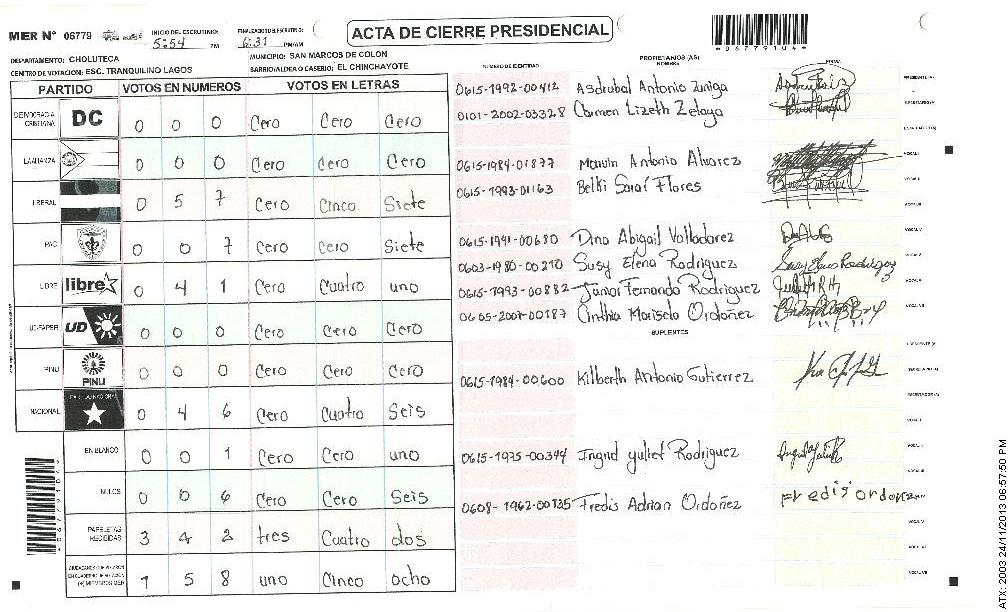 MER N° 06779
INICIO DEL ESCRUTINIO: 5:54 PM
FINALIZADO ESCRUTINIO: 6:31 PM/AM
ACTA DE CIERRE PRESIDENCIAL
DEPARTAMENTO: CHOLUTECA
MUNICIPIO: SAN MARCOS DE COLON
CENTRO DE VOTACION: ESC. TRANQUILINO LAGOS
BARRIO/ALDEA O CASERIO: EL CHINCHAYOTE
PARTIDO VOTOS EN NUMEROS VOTOS EN LETRAS
DEMOCRACIA CRISTIANA DC 0 0 0 Cero Cero Cero
LA ALIANZA 0 0 0 Cero Cero Cero
LIBERAL 0 5 7 Cero Cinco Siete
PAC 0 0 7 Cero Cero Siete
LIBRE libre 0 4 1 Cero Cuatro uno
UD-FAPER UD 0 0 0 Cero Cero Cero
PINU PINU 0 0 0 Cero Cero Cero
NACIONAL 0 4 6 Cero Cuatro Seis
EN BLANCO 0 0 1 Cero Cero uno
NULOS 0 0 6 Cero Cero Seis
PAPELETAS RECIBIDAS 3 4 2 tres Cuatro dos
(+) MIEMBROS MER 1 5 8 uno Cinco ocho
NUMERO DE IDENTIDAD
PROPIETARIOS (AS)
NOMBRE
FIRMA
0615-1992-00412 Asdrubal Antonio Zuniga
0101-2002-03328 Carmen Lizeth Zelaya
0615-1984-01877 Marvin Antonio Alvarez
0615-1993-01163 Belki Saraí Flores
0615-1991-00680 Dina Abigail Valladarez
0603-1980-00210 Susy Elena Rodriguez
0615-1993-00882 Junior Fernando Rodriguez
0605-2007-00187 Cinthia Marisela Ordoñez
SUPLENTES
0615-1984-00600 Kilberth Antonio Gutierrez
0615-1975-00344 Ingrid yuliet Rodriguez
0608-1962-00135 Fredis Adrian Ordoñez
Fredis ordon
*067791044*
ATX: 2003 24/11/2013 06:57:50 PM